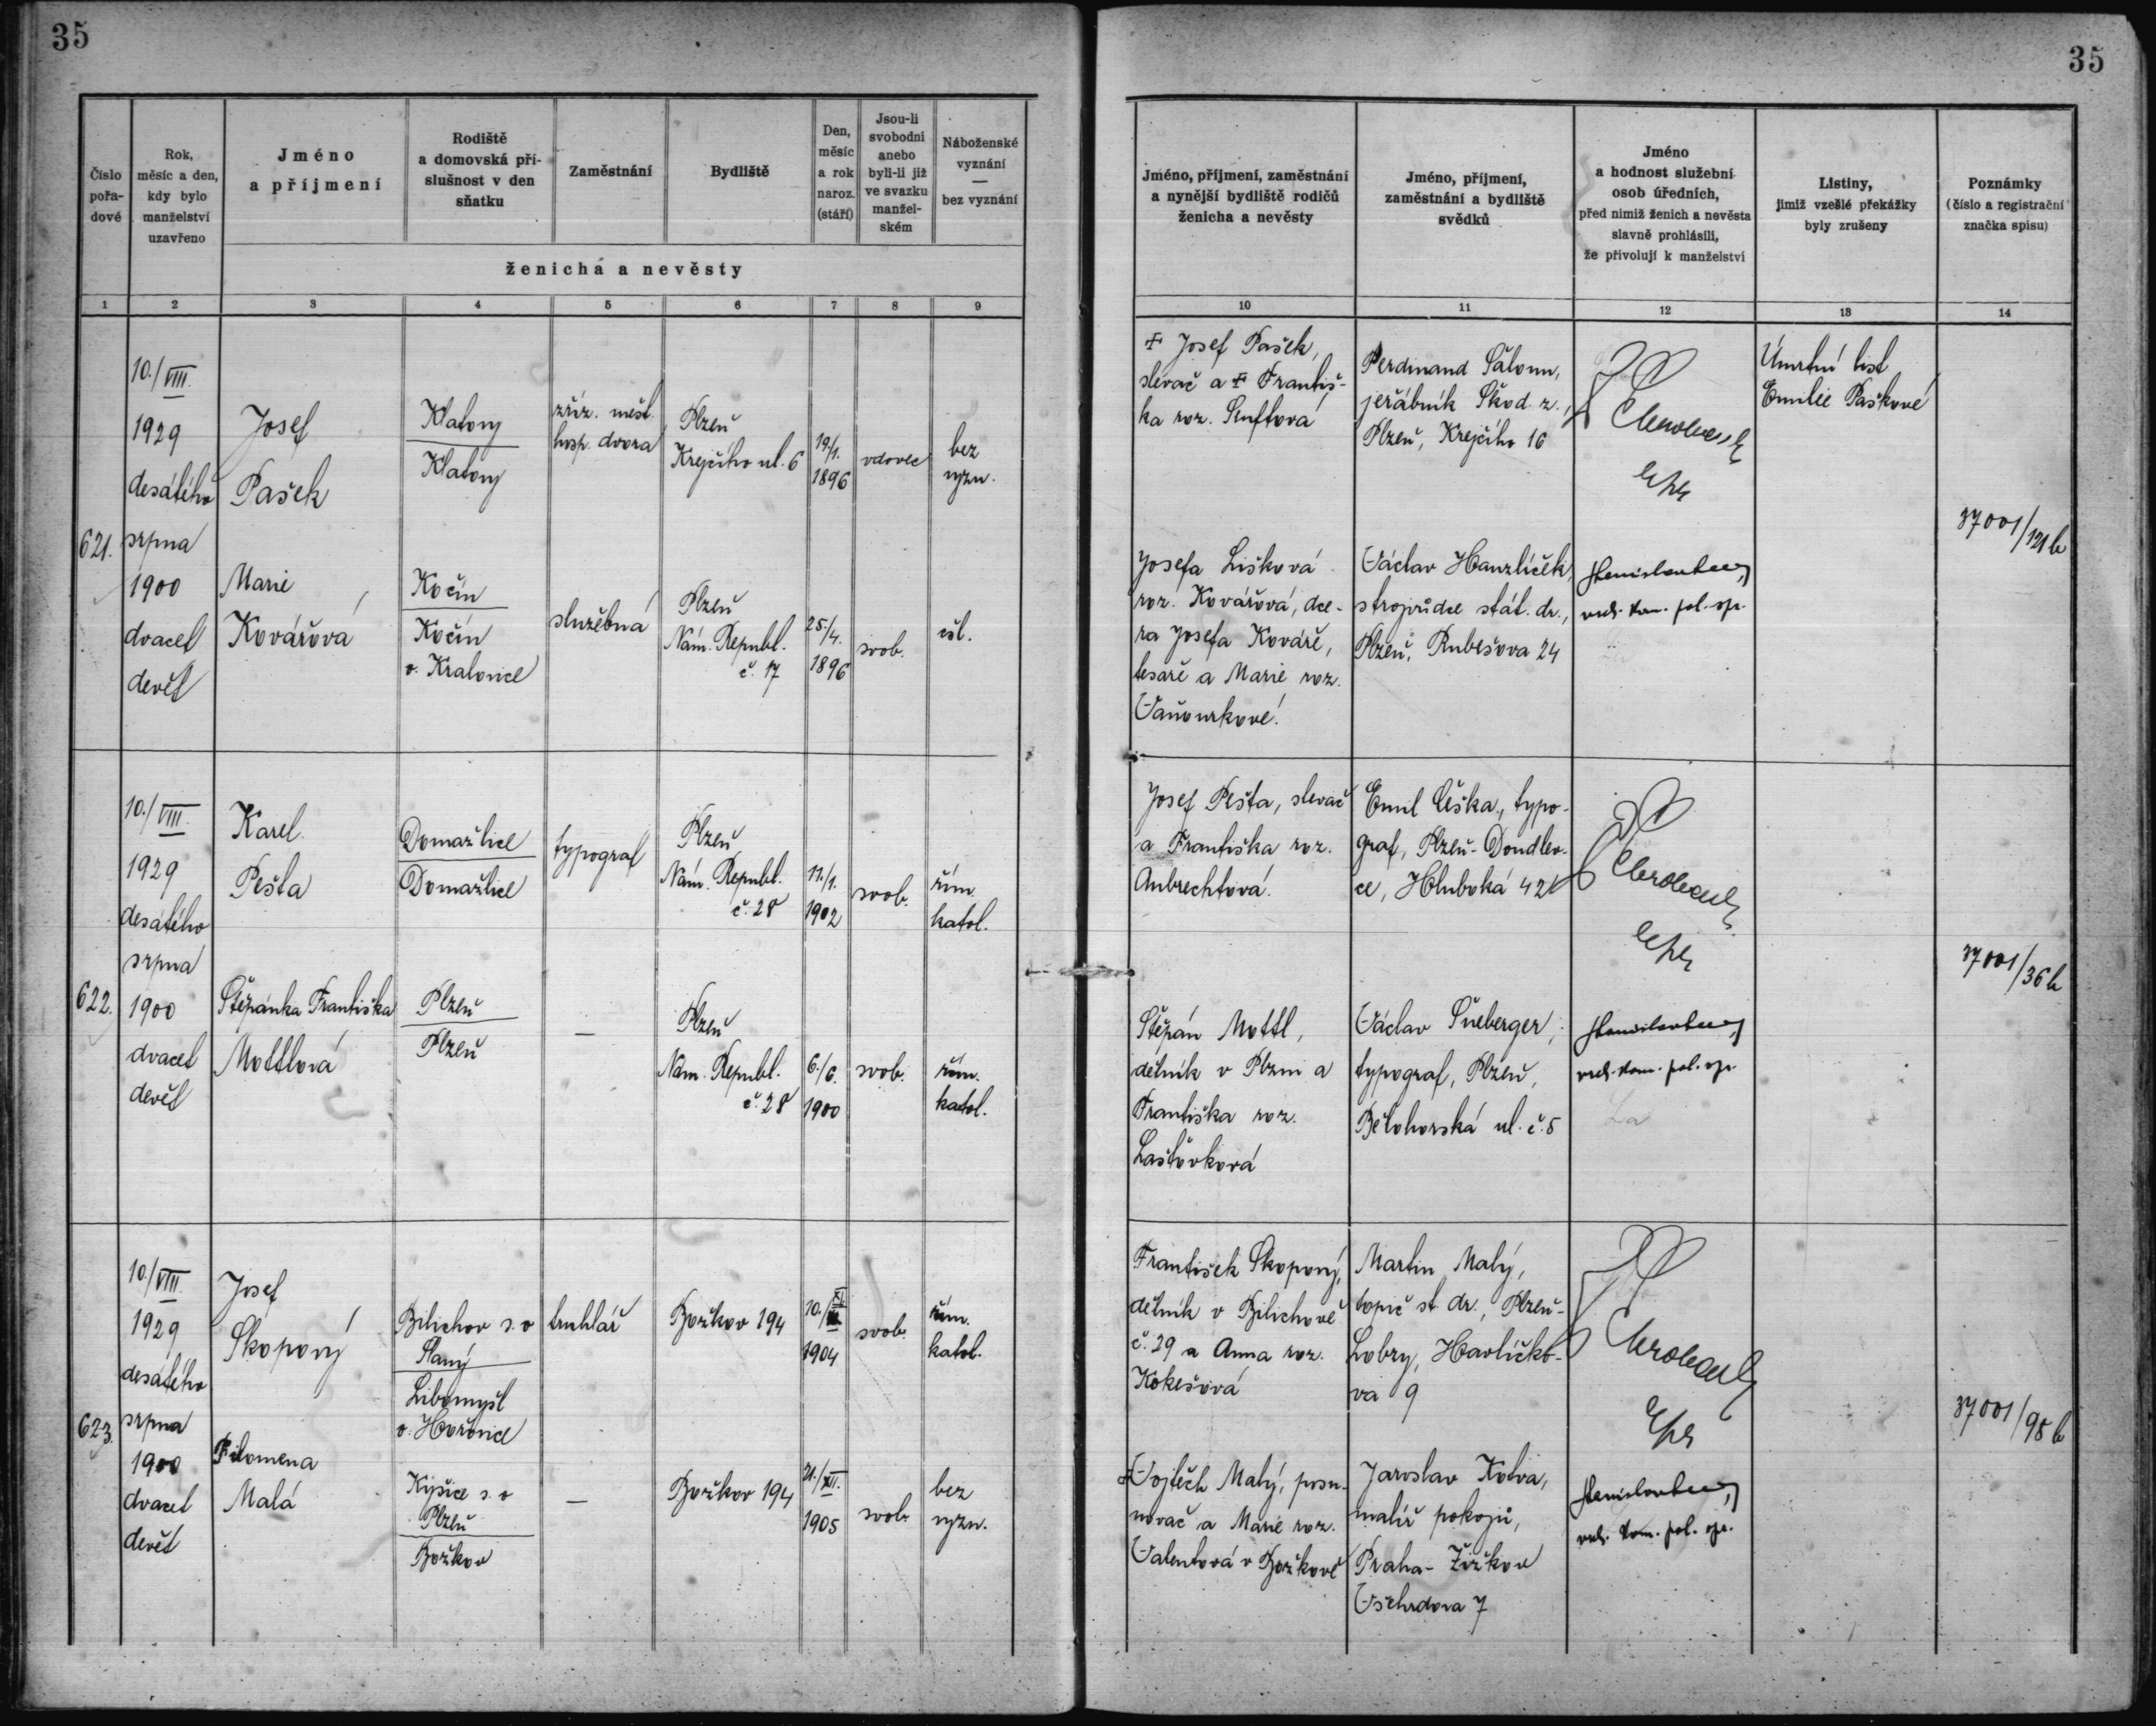 35
35
Číslo pořa-dové
Rok, měsíc a den, kdy bylo manželství uzavřeno
Jméno a příjmení
Rodiště a domovská pří-slušnost v den sňatku
Zaměstnání
Bydliště
Den, měsíc a rok naroz. (stáří)
Jsou-li svobodni anebo byli-li již ve svazku manžel-ském
Náboženské vyznání — bez vyznání
ženicha a nevěsty
Jméno, příjmení, zaměstnání a nynější bydliště rodičů ženicha a nevěsty
Jméno, příjmení, zaměstnání a bydliště svědků
Jméno a hodnost služební osob úředních, před nimiž ženich a nevěsta slavně prohlásili, že přivolují k manželství
Listiny, jimiž vzešlé překážky byly zrušeny
Poznámky (číslo a registrační značka spisu)
1 2 3 4 5 6 7 8 9
10 11 12 13 14
621.
10./VIII.
1929
desátého
srpna
1900
dvacet
devět
Josef
Pašek
Klatovy
Klatovy
zříz. měst.
hosp. dvora
Plzeň
Krejčího ul. 6
19/1.
1896
vdovec
bez
vyzn.
Marie
Kovářová
Kočín
Kočín
o. Kralovice
služebná
Plzeň
Nám. Republ.
č. 17
25/4.
1896
svob.
čsl.
Josef Pašek,
slévač a ✝ Františ-
ka roz. Šnuftová
Ferdinand Šalom,
jeřábník Škod. z.,
Plzeň, Krejčího 16
Úmrtní list
Emilie Paškové
37001/121b
Josefa Lišková
roz. Kovářová, dce-
ra Josefa Kováře,
tesaře a Marie roz.
Vaňourkové.
Václav Hanzlíček,
strojvůdce stát. dr.,
Plzeň, Rubešova 24
kom. pol. spr.
622.
10./VIII.
1929
desátého
srpna
1900
dvacet
devět
Karel
Pešta
Domažlice
Domažlice
typograf
Plzeň
Nám. Republ.
č. 28
11./1.
1902
svob.
řím.
katol.
Štěpánka Františka
Mottlová
Plzeň
Plzeň
—
Plzeň
Nám. Republ.
č. 28
6./6.
1900
svob.
řím.
katol.
Josef Pešta, slévač
a Františka roz.
Aubrechtová.
Emil Češka, typo-
graf, Plzeň-Doudlev-
ce, Hluboká 42
37001/36b
Štěpán Mottl,
dělník v Plzni a
Františka roz.
Laštovková
Václav Šneberger,
typograf, Plzeň,
Bělohorská ul. č. 5
kom. pol. spr.
623.
10./VIII.
1929
desátého
srpna
1900
dvacet
devět
Josef
Skopový
Bilichov s. o
Slaný
Libomyšl
o. Hořovice
truhlář
Božkov 194
10./XI.
1904
svob.
řím.
katol.
Filomena
Malá
Kyšice s. o
Plzeň
Božkov
—
Božkov 194
21./XII.
1905
svob.
bez
vyzn.
František Skopový,
dělník v Bilichově
č. 29 a Anna roz.
Kokešová
Martin Malý,
topič st. dr., Plzeň-
Lobzy, Havlíčko-
va 9
37001/98b
Vojtěch Malý, posu-
novač a Marie roz.
Valentová v Božkově
Jaroslav Kotva,
malíř pokojů,
Praha-Žižkov
Všehrdova 7
kom. pol. spr.